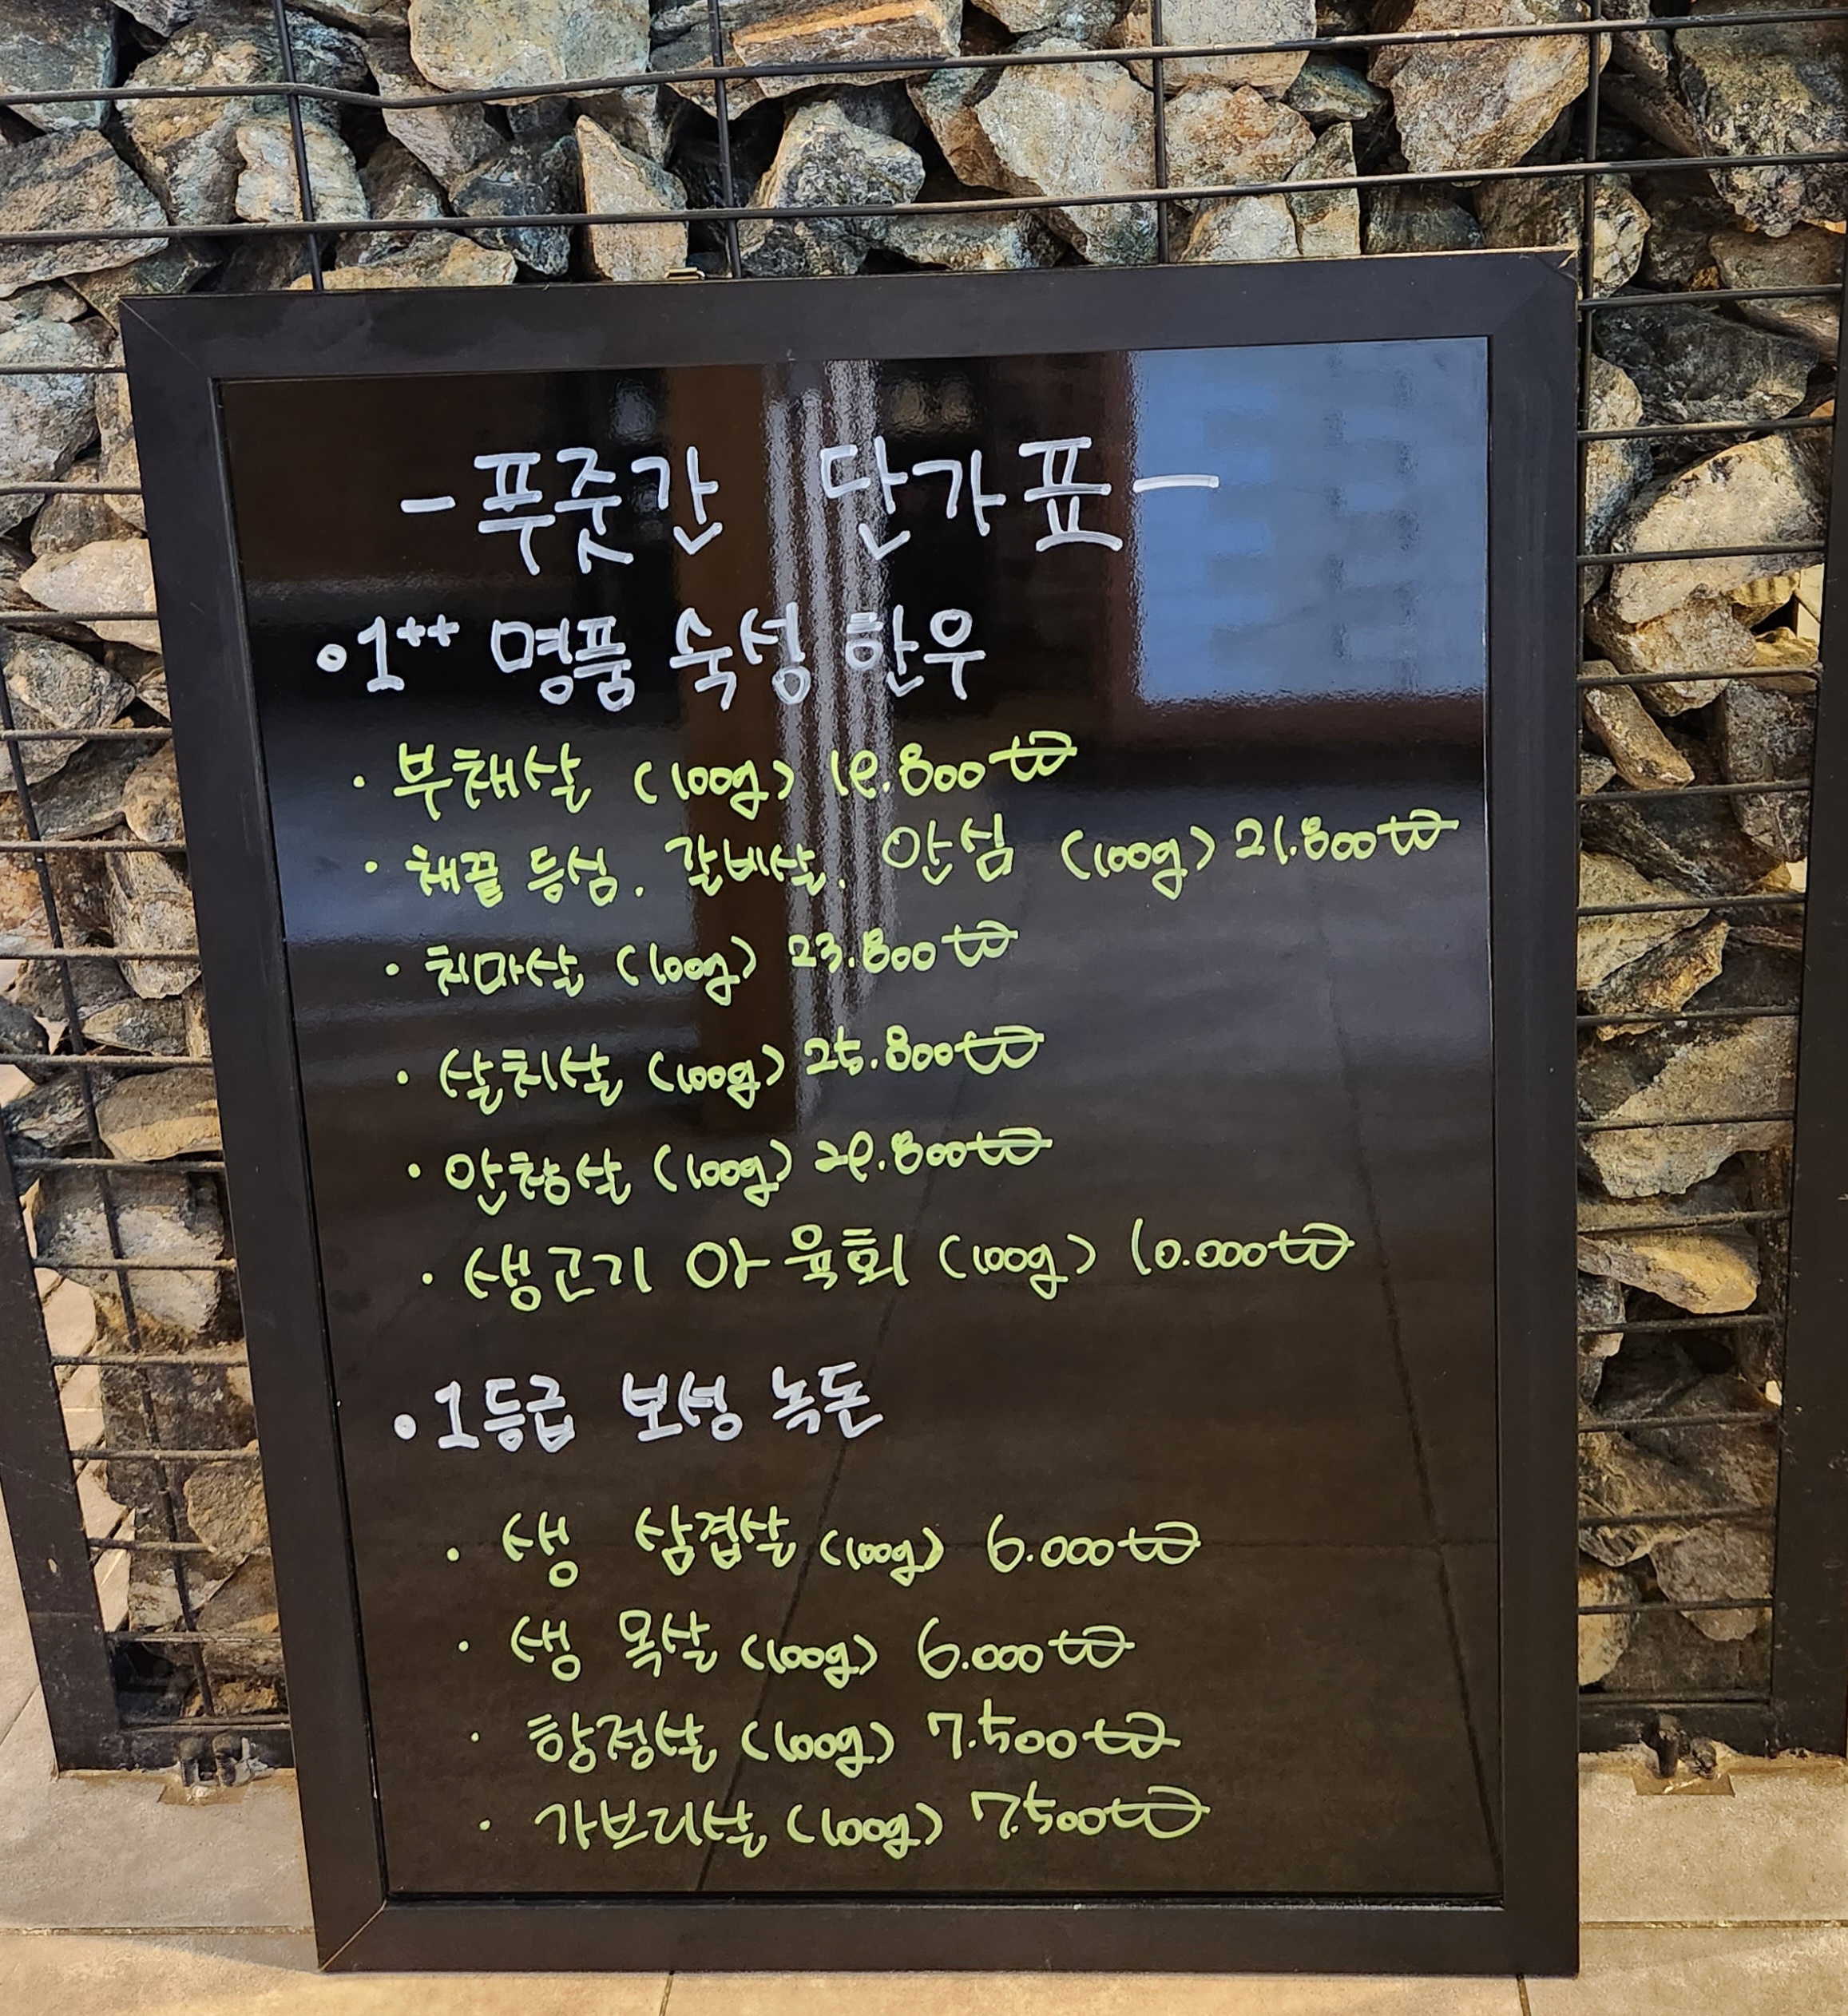 - 푸줏간 단가표 -
• 1++ 명품 숙성 한우
· 부채살 (100g) 18.800₩
· 채끝 등심. 갈비살. 안심 (100g) 21.800₩
· 치마살 (100g) 23.800₩
· 살치살 (100g) 25.800₩
· 안창살 (100g) 28.800₩
· 생고기 아 육회 (100g) 10.000₩
• 1등급 보성 녹돈
· 생 삼겹살 (100g) 6.000₩
· 생 목살 (100g) 6.000₩
· 항정살 (100g) 7.500₩
· 가브리살 (100g) 7.500₩